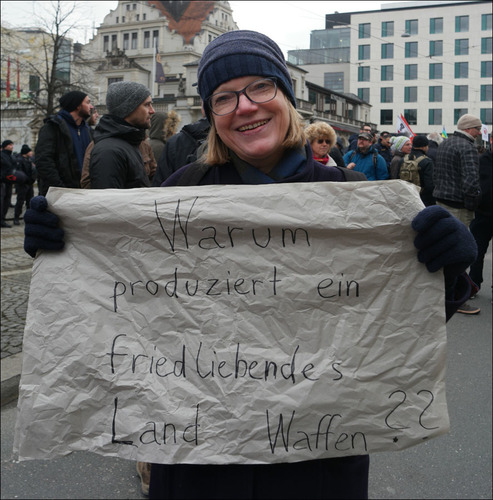 Warum
produziert ein
friedliebendes
Land Waffen ??